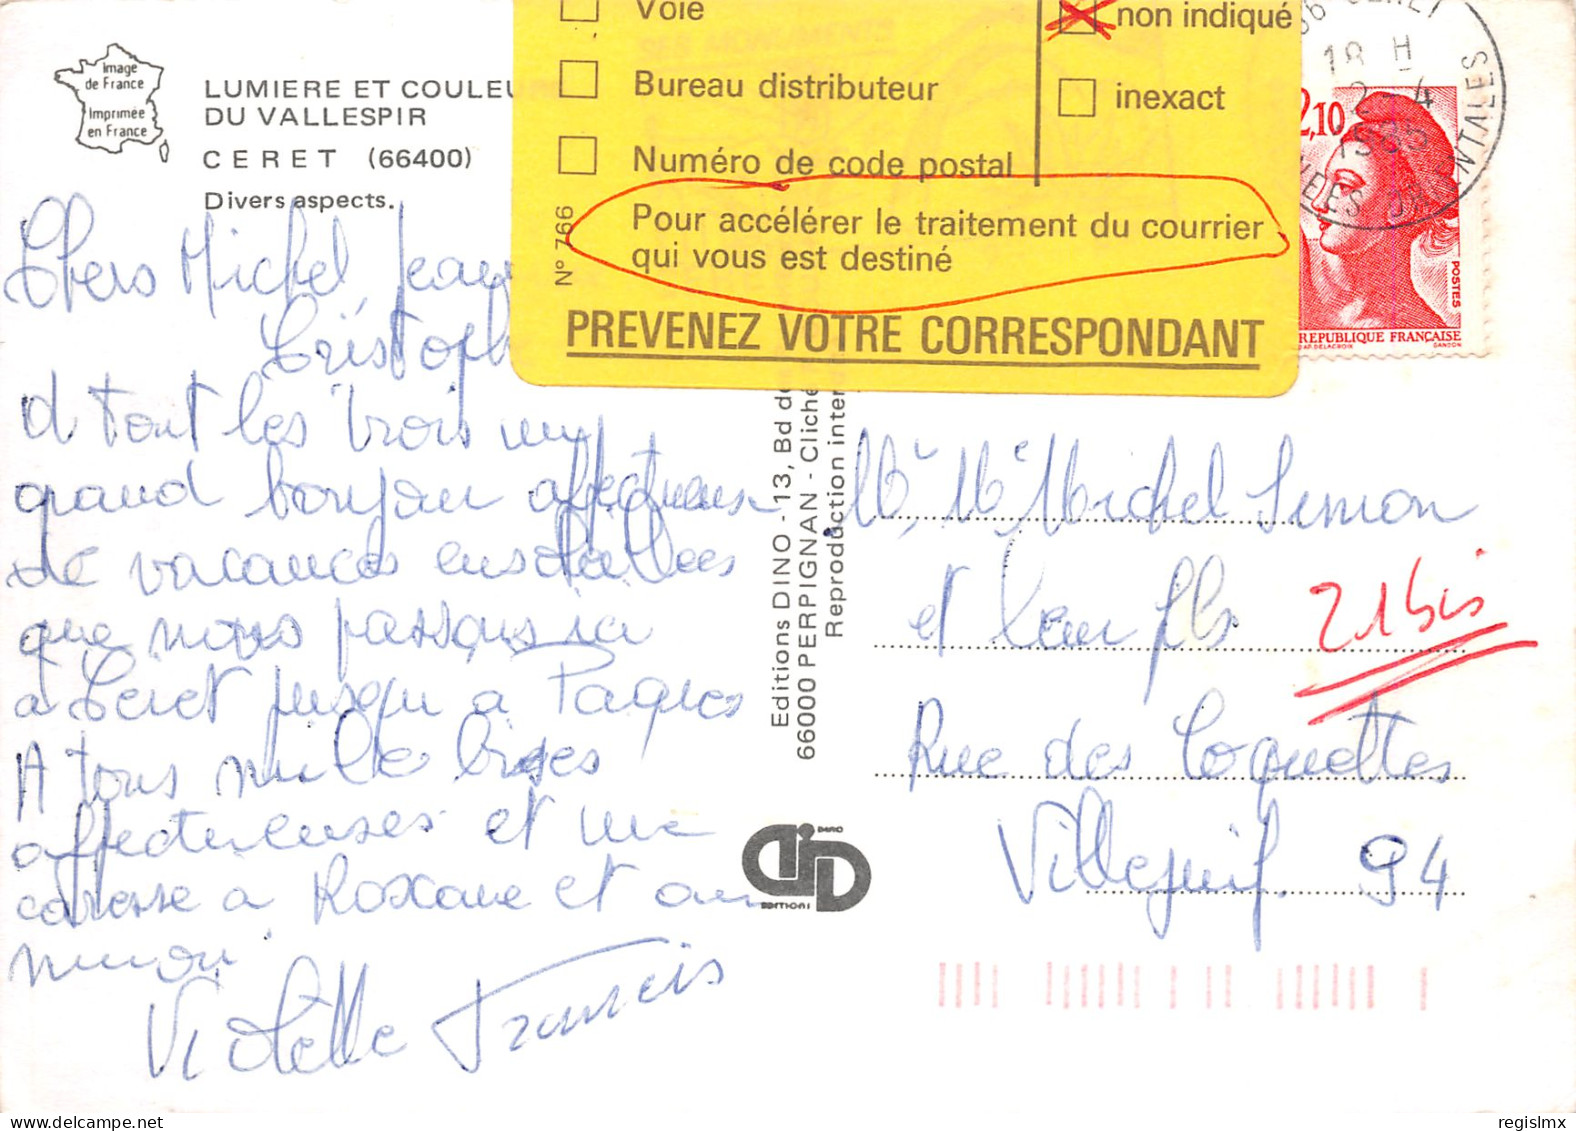 Image
de France
Imprimée
en France
LUMIERE ET COULEU
DU VALLESPIR
CERET (66400)
Divers aspects.
Voie
Bureau distributeur
Numéro de code postal
non indiqué
inexact
Pour accélérer le traitement du courrier
qui vous est destiné
N° 766
PREVENEZ VOTRE CORRESPONDANT
66 CERET
18 H
2 - 4
ENTALES
2,10
POSTES
REPUBLIQUE FRANÇAISE
D'AP. DELACROIX GANDON
Chers Michel, Jean
Cristoph
A tout les trois un
grand bonjour affectueux
de vacances ensoleillées
que nous passons ici
a Ceret jusqu'a Paques
A tous mille bises
affectueuses et une
caresse a Roxane et au
minou.
Violette Francis
Editions DINO - 13, Bd de
66000 PERPIGNAN - Cliché
Reproduction inter
DINO
EDITIONS
Mr, Me Michel Simon
et leur fils 21 bis
Rue des Coquettes
Villejuif. 94
regislmx